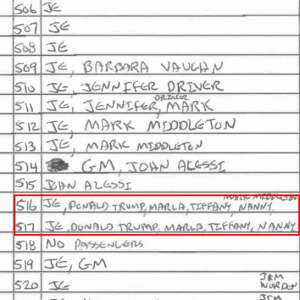 506 JE
507 JE
508 JE
509 JE, BARBARA VAUGHN
510 JE, JENNIFER DRIVER
511 JE, JENNIFER, DRIVER MARK
512 JE, MARK MIDDLETON
513 JE, MARK MIDDLETON
514 GM, JOHN ALESSI
515 JOHN ALESSI
516 JE, DONALD TRUMP, MARLA, TIFFANY, NANNY, MARK MIDDLETON
517 JE, DONALD TRUMP, MARLA, TIFFANY, NANNY
518 NO PASSENGERS
519 JE, GM
520 JE JIM